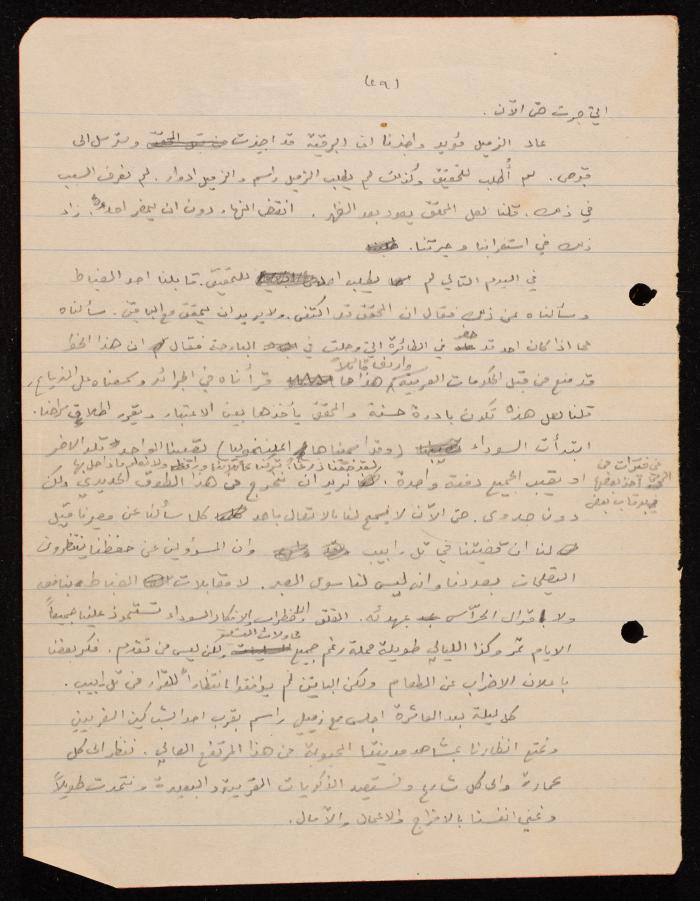 (٢٩)
التي جرت حتى الآن.
عاد الزميل مؤيد واخبرنا ان البرقية قد اجيزت من قبل المحقق وسترسل الى
قبرص. لم أُطلب للتحقيق وكذلك لم يطلب الزميل راسم والزميل ادوار. لم نعرف السبب
في ذلك. قلنا لعل المحقق يعود بعد الظهر. انقضى النهار دون ان يحضر احد. زاد
ذلك في استغرابنا وحيرتنا.
في اليوم التالي لم يطلب احد للتحقيق. قابلنا احد الضباط
وسألناه عن ذلك فقال ان المحقق قد اكتفى. ولا يريد ان يحقق مع الباقين. سألناه
عما اذا كان احد قد حضر في الطائرة التي وصلت في البارحة فقال ان هذا الخط
قد منع من قبل الحكومات العربية واردف قائلاً هذا ما قرأناه في الجرائد وسمعناه على المذياع.
قلنا لعل هذه تكون بادرة حسنة والمحقق يأخذها بعين الاعتبار ويقرر اطلاق سراحنا.
ابتدأت السوداء (وقد اسميناها الملينخوليا) تصيبنا الواحد تلو الاخر
في فترات من
او تصيب الجميع دفعة واحدة. نريد ان نخرج من هذا الطوق الحديدي ولكن
دون جدوى. حتى الآن لا يسمح لنا بالاتصال باحد كلما سألنا عن مصيرنا قيل
لنا ان قضيتنا في تل ابيب وان المسؤولين عن حفظنا ينتظرون
التعليمات بصددنا وان ليس لنا سوى الصبر. لا مقابلات الضباط بنافعة
ولا اقوال الحرّاس مهدئه. القلق والاضطراب والافكار السوداء تستحوذ علينا جميعاً
الايام تمر وكذا الليالي طويلة مملة رغم جميع محاولات التسلية ولكن ليس من تقدم. فكر بعضنا
باعلان الاضراب عن الطعام ولكن الباقين لم يوافقوا انتظاراً للقرار من تل ابيب.
كل ليلة بعد العاشرة اجلس مع زميلي راسم بقرب احد الشبابيك الغربية
ونمتع انظارنا بمشاهد مدينتنا المحبوبة من هذا المرتفع العالي. ننظر الى كل
عمارة والى كل شارع ونستعيد الذكريات القريبة والبعيدة ونتحدث طويلاً
ونمني انفسنا بالافراج والاعمال والآمال.